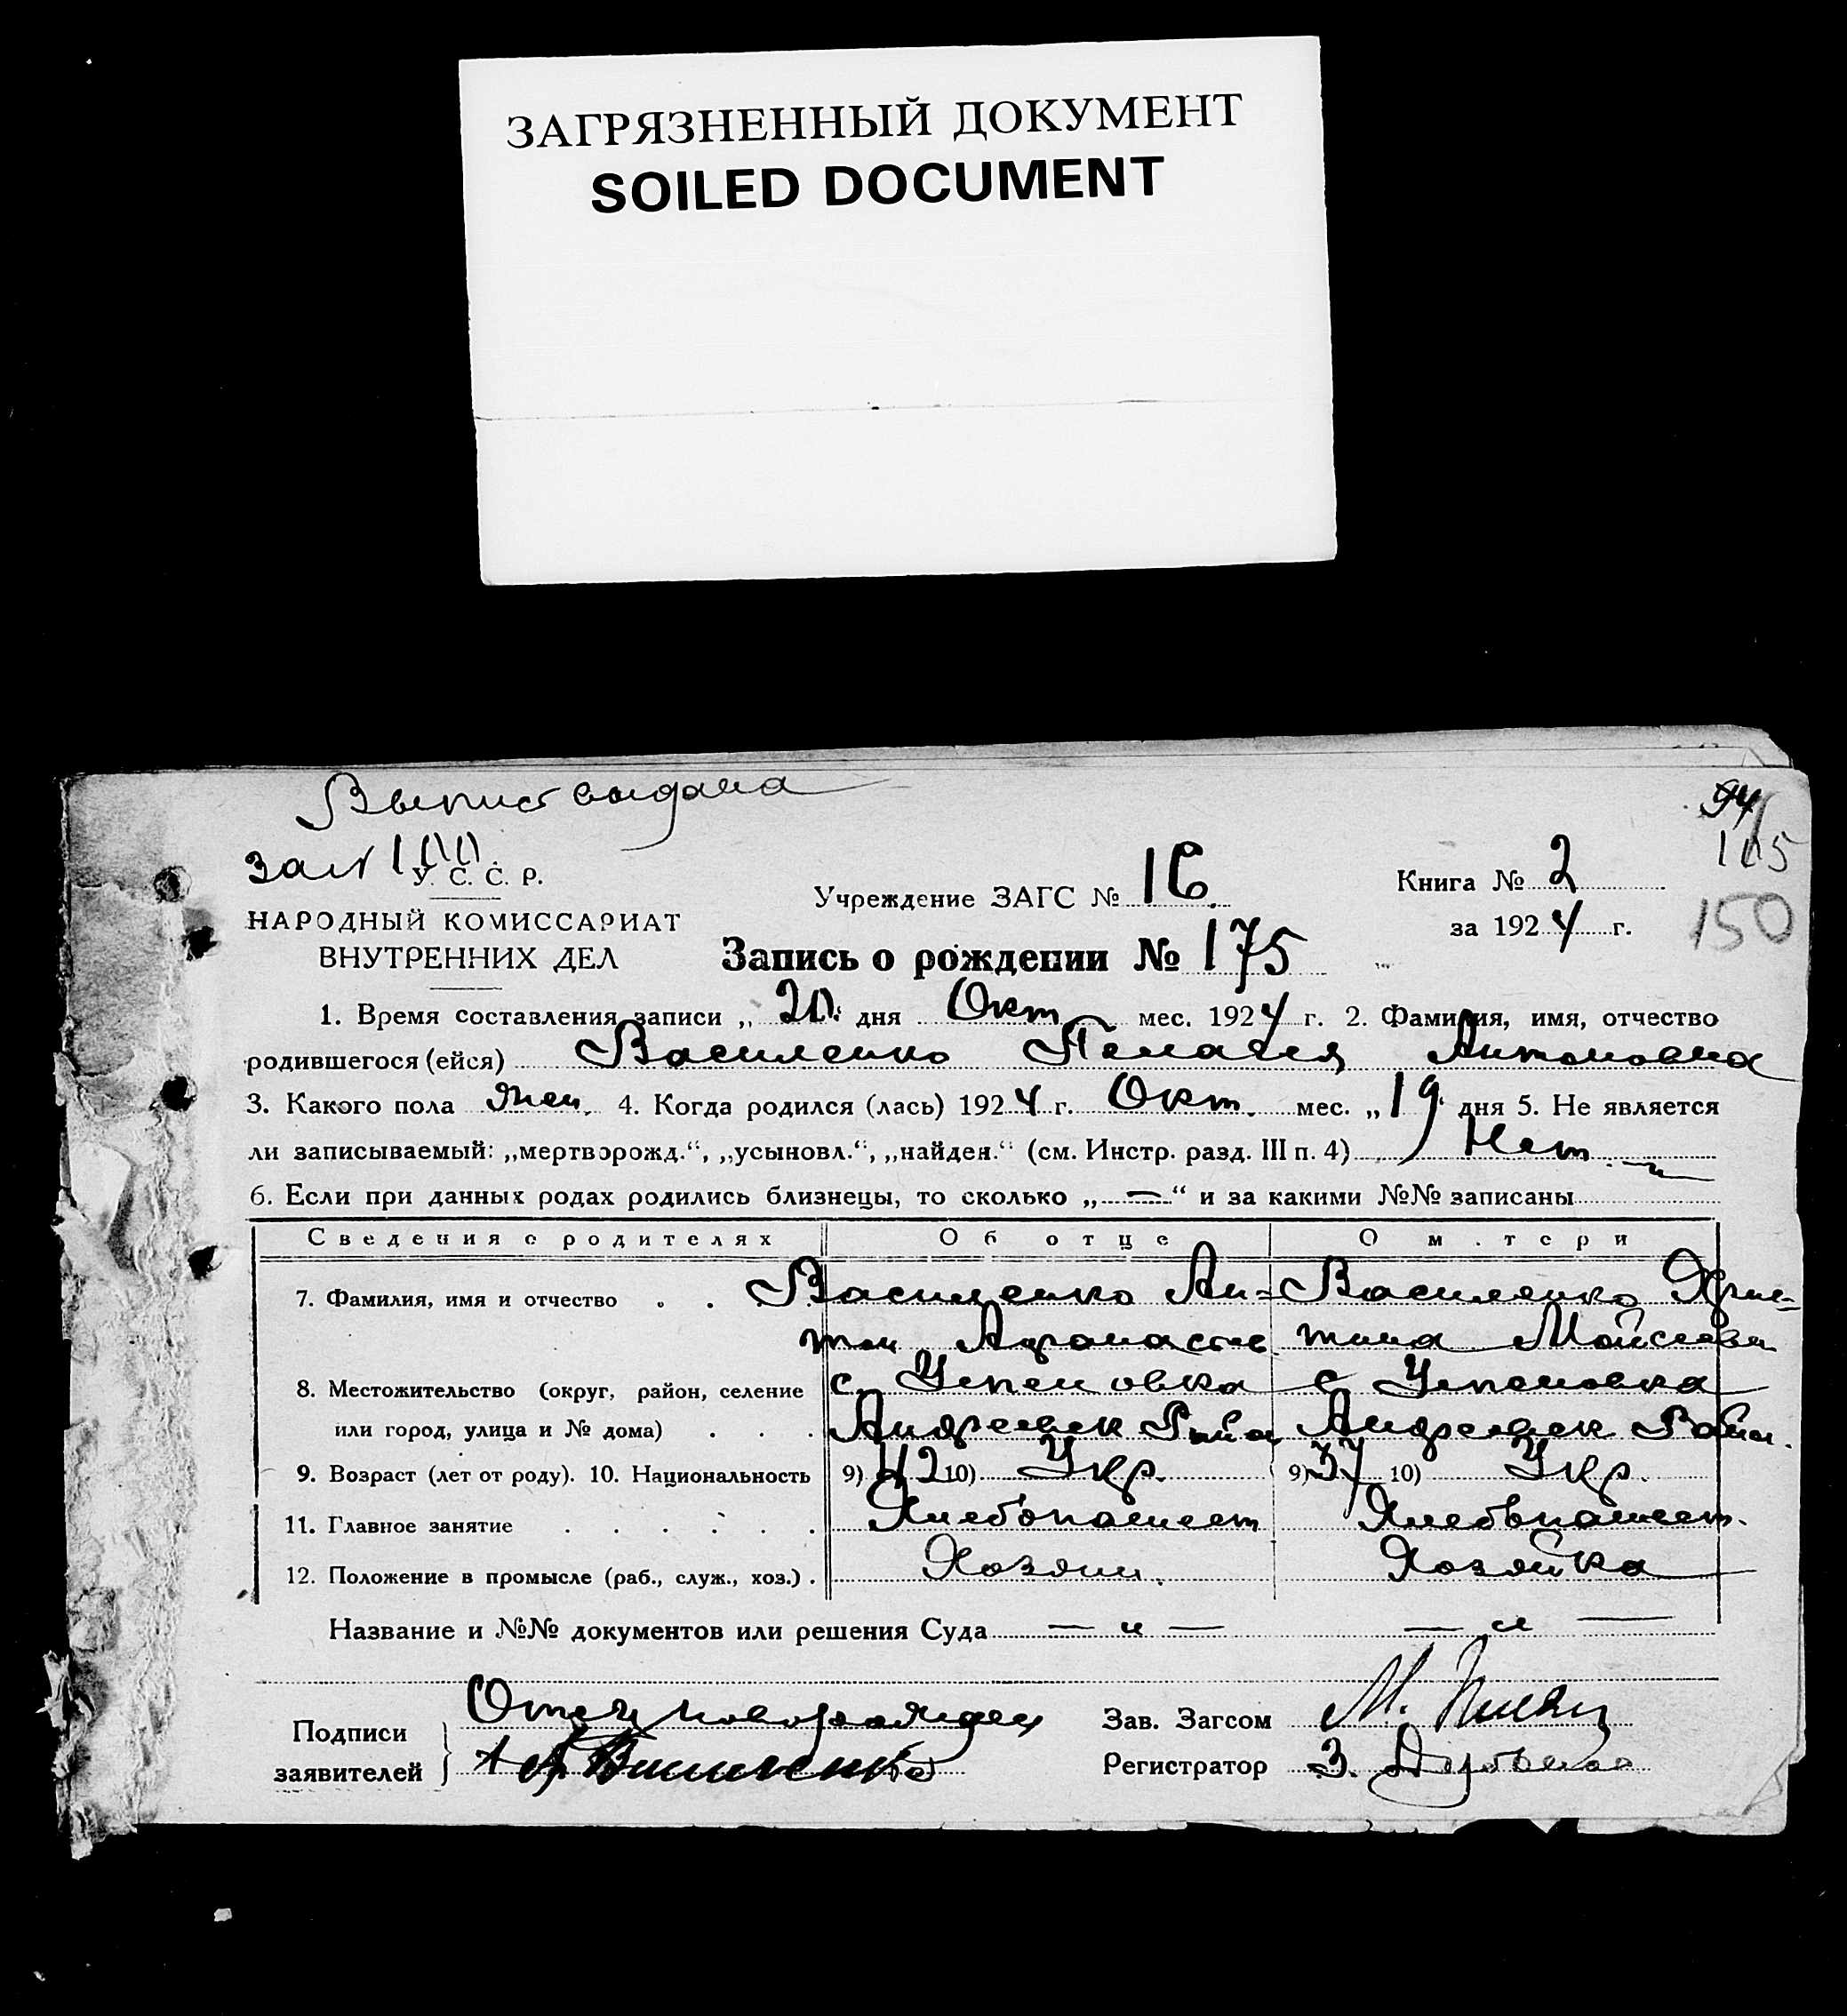 ЗАГРЯЗНЕННЫЙ ДОКУМЕНТ
SOILED DOCUMENT
Выпись выдана
94
115
150
У. С. С. Р.
НАРОДНЫЙ КОМИССАРИАТ
ВНУТРЕННИХ ДЕЛ
Учреждение ЗАГС № 16.
Книга № 2
за 1924 г.
Запись о рождении № 175
1. Время составления записи „ 20 дня Окт. мес. 1924 г. 2. Фамилия, имя, отчество
родившегося (ейся) Василенко Пелагея Антоновна
3. Какого пола жен. 4. Когда родился (лась) 1924 г. Окт. мес. „19 дня 5. Не является
ли записываемый: „мертворожд.“, „усыновл.“, „найден.“ (см. Инстр. разд. III п. 4) Нет.
6. Если при данных родах родились близнецы, то сколько „ — “ и за какими №№ записаны
Сведения о родителях Об отце О матери
7. Фамилия, имя и отчество Василенко Ан= Василенко Хрис=
тон Афонасьев. тина Мойсеевн
8. Местожительство (округ, район, селение с. Успеновка с Успеновка
или город, улица и № дома) Андреевск Райо. Андреевск Райо.
9. Возраст (лет от роду). 10. Национальность 9) 42 10) Укр. 9) 37 10) Укр.
11. Главное занятие Хлебопашест Хлебопашест.
12. Положение в промысле (раб., служ., хоз.) . Хозяин. Хозяйка
Название и №№ документов или решения Суда — „ — — „ —
Подписи
заявителей
Отец новорожден
А Василенко
Зав. Загсом М.
Регистратор З.